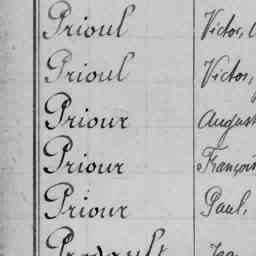 Prioul Victor,
Prioul Victor,
Priour August
Priour François
Priour Paul,